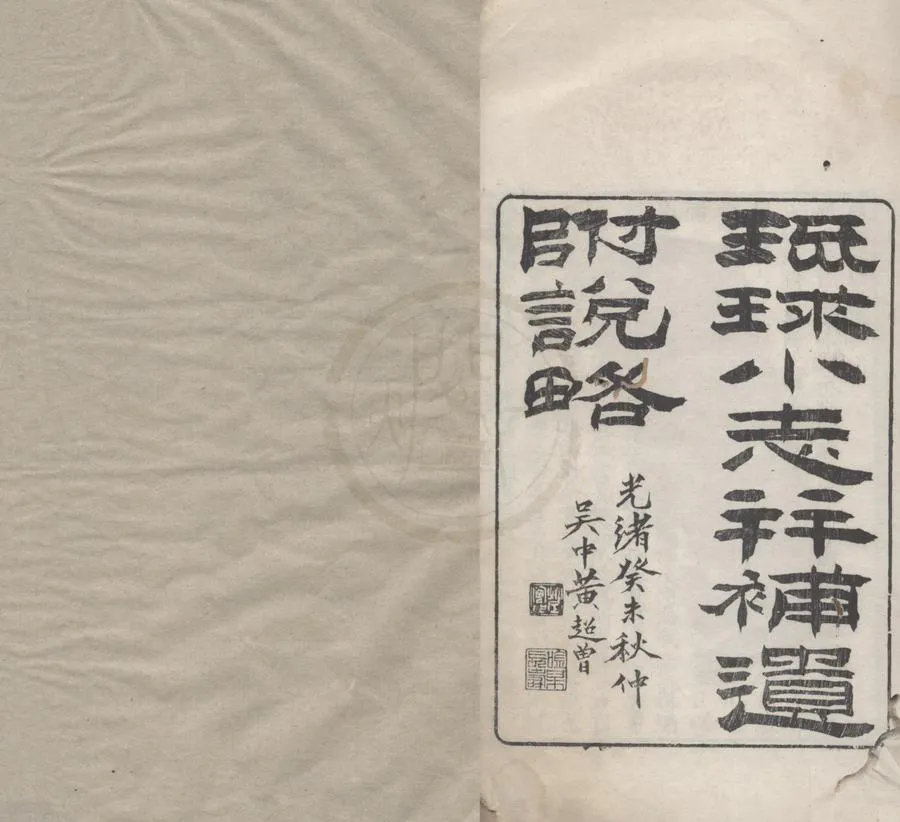 琉球小志幷補遺
附說略
光緒癸未秋仲
吳中黃超曾